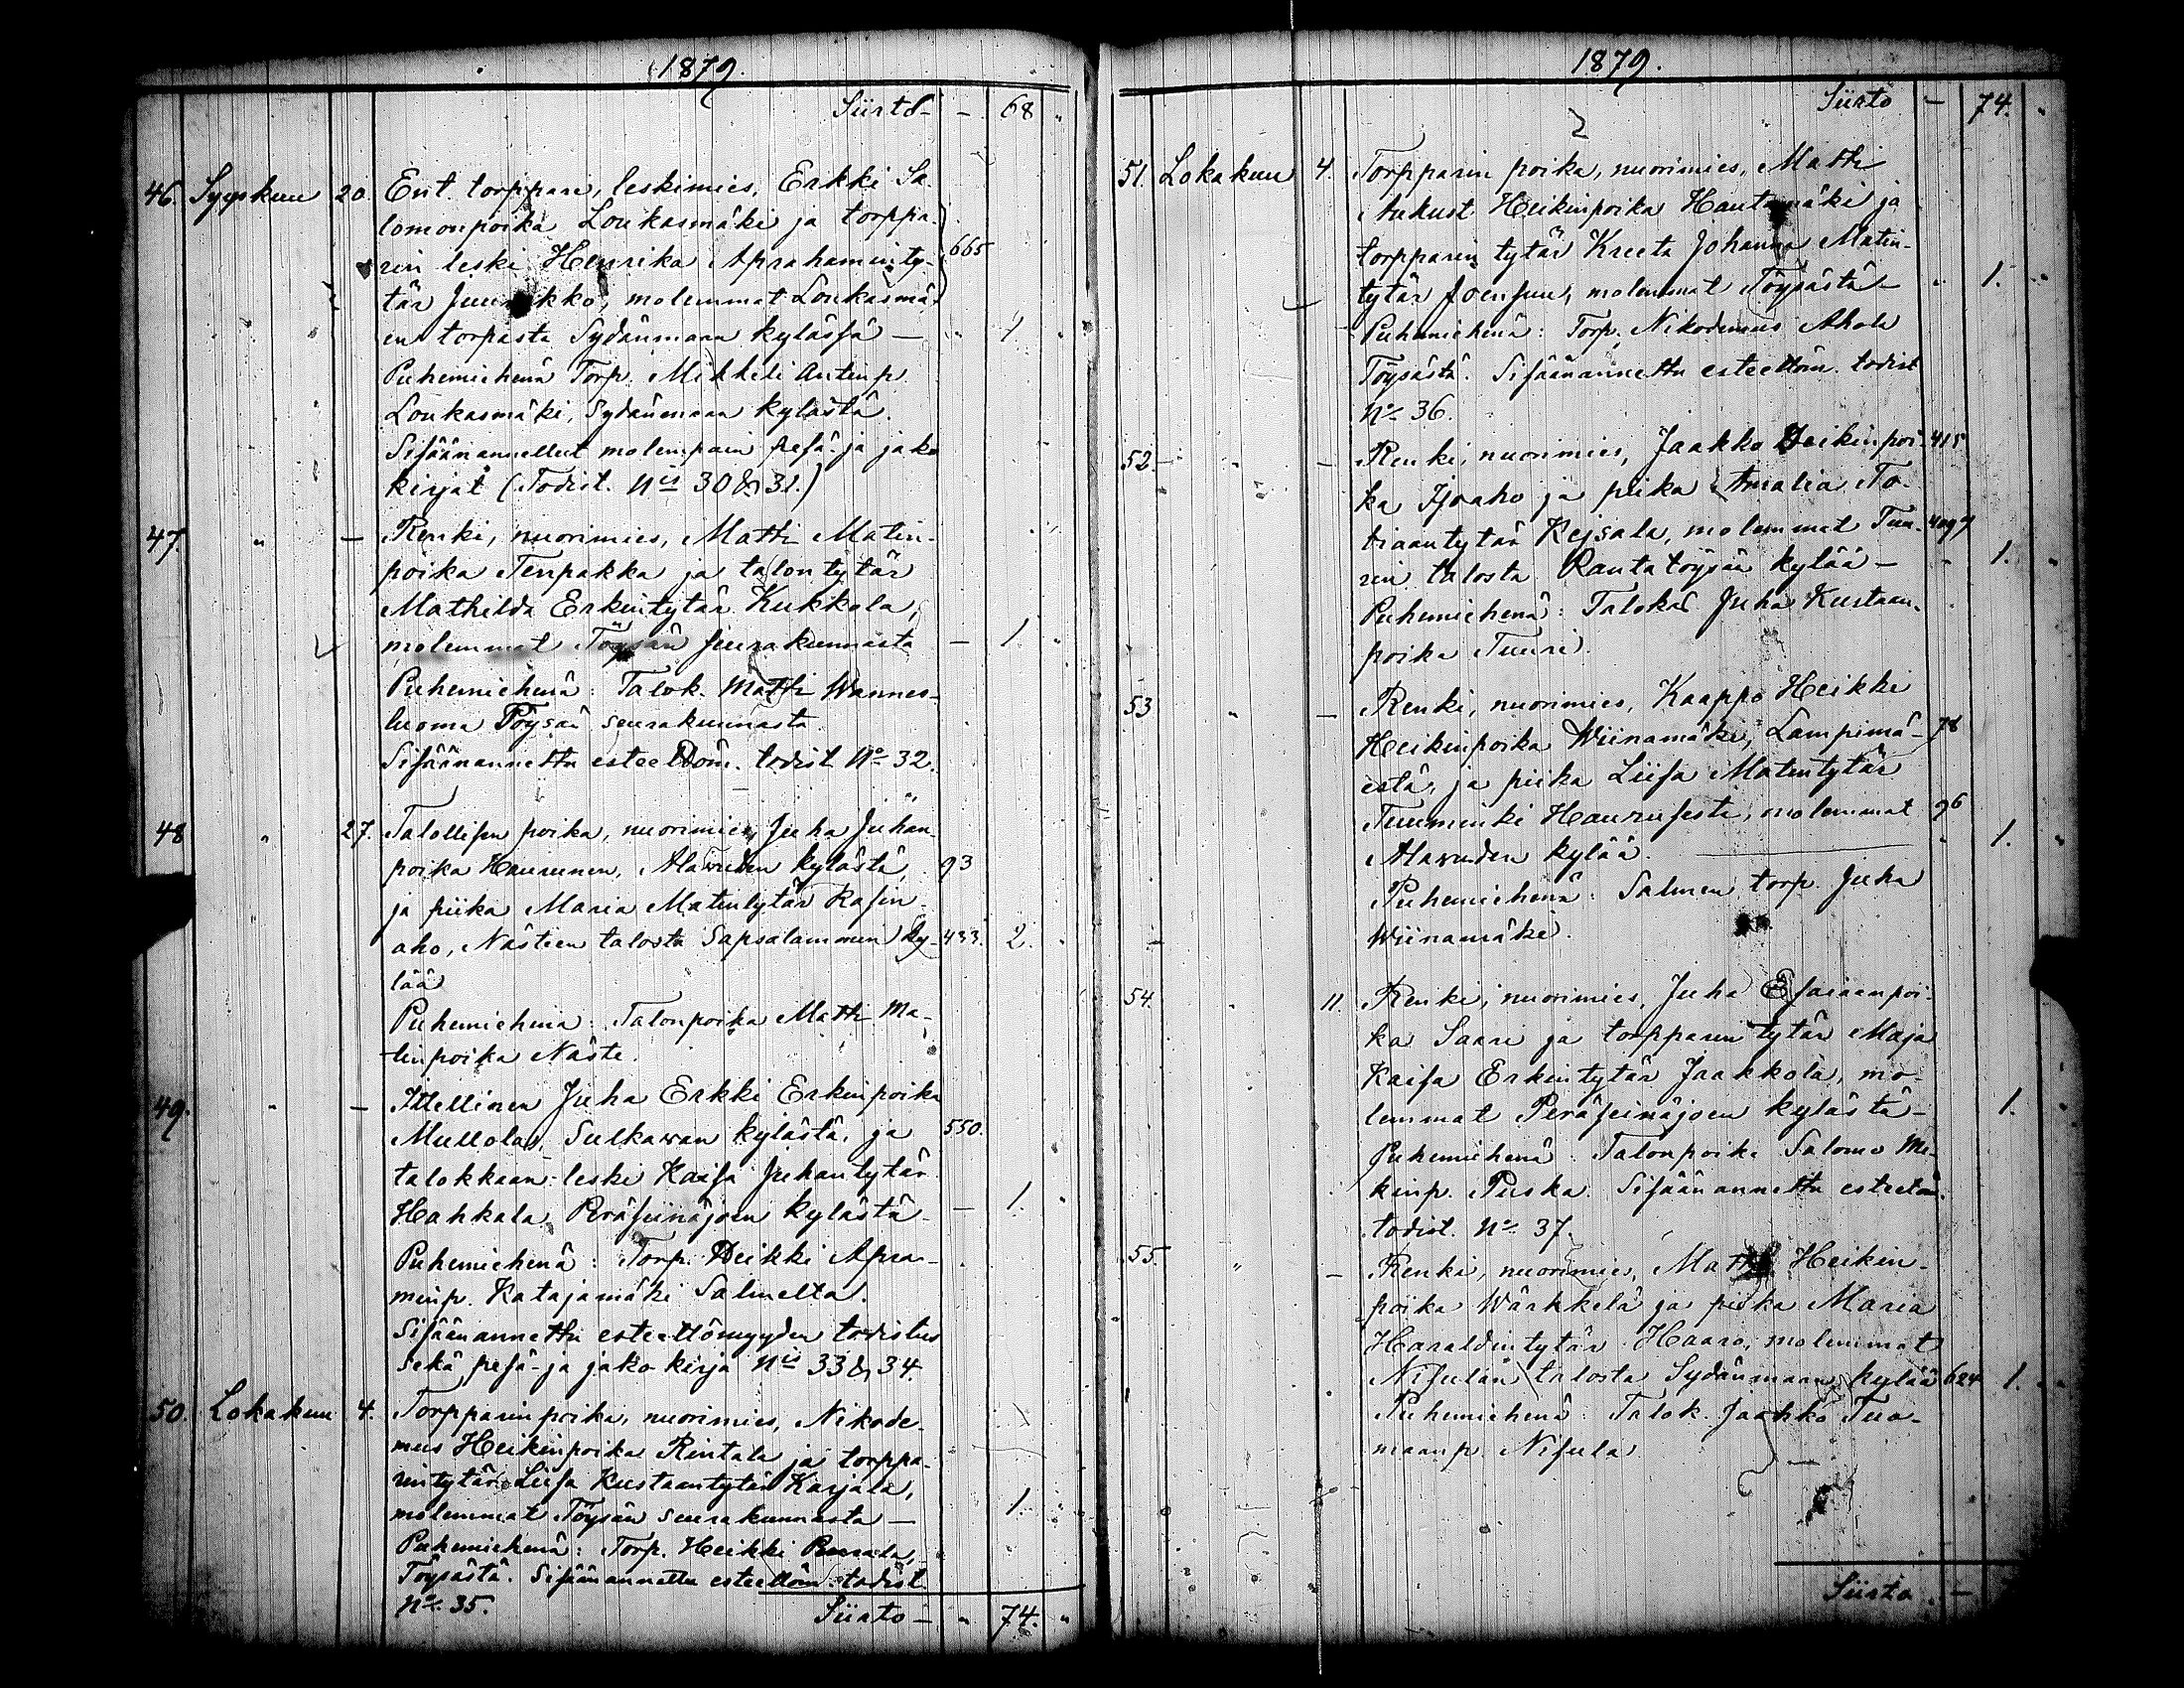 1879.
Siirto - - 68 "
46. Syyskuu 20. Ent. torppari, leskimies, Erkki Sa-
lomonpoika Loukasmäki ja torppa-
rin leski Henrika Aprahaminty- 665
tär Juurikko, molemmat Loukasmä-
en torpasta Sydänmaan kylässä — " 1. "
Puhemiehenä Torp. Mikkeli Antinp.
Loukasmäki, Sydänmaan kylästä.
Sisäänannettu molempain pesä- ja jako
kirjat (Todist. Nis 30 & 31.)
47. " — Renki, nuorimies, Matti Matin-
poika Tenpakka ja talon tytär
Mathilda Erkintytär Kukkola,
molemmat Töysän seurakunnasta — 1. "
Puhemiehenä: Talok. Matti Wannes-
luoma Töysän seurakunnasta
Sisäänannettu esteettöm. todist No 32.
48 " 27. Talollisen poika, nuorimies, Juha Juhan-
poika Haurunen, Alavuden kylästä, 93
ja piika Maria Matintytär Rasin-
aho, Nästien talosta Sapsalammin ky- 433. 2. "
lää
Puhemiehenä: Talonpoika Matti Ma-
tinpoika Näste.
49. " — Itellinen Juha Erkki Erkinpoika
Mullola, Sulkavan kylästä, ja 550.
talokkaan leski Kaisa Juhantytär
Hahkala, Peräseinäjoen kylästä — 1. "
Puhemiehenä: Torp. Heikki Apra-
minp. Katajamäki Salmelta.
Sisäänannettu esteettömyyden todistus
sekä pesä- ja jako kirja Nis 33 & 34.
50. Lokakuu 4. Torpparin poika, nuorimies, Nikode-
mus Heikinpoika Rintala ja torppa-
rintytär Liisa Kustaantytär Karjala,
molemmat Töysän seurakunnasta — 1. "
Puhemiehenä: Torp. Heikki
Töysästä. Sisäänannettu esteettöm. todist.
No 35.
Siirto — " 74. "
1879.
Siirto — 74. "
51. Lokakuu 4. Torpparin poika, nuorimies, Matti
Aukust Heikinpoika Hautamäki ja
torpparin tytär Kreeta Johanna Matin-
tytär Joensuu, molemmat Töysästä — " 1. "
Puhemiehenä: Torp. Nikodemus Ahola
Töysästä. Sisäänannettu esteettöm. todist
No 36.
52. " — Renki, nuorimies, Jaakko Heikinpoi- 415
ka Isoaho ja piika Amalia To-
biaantytär Kejsala, molemmat Tuu- 409
rin talosta Rantatöysän kylää — " 1. "
Puhemiehenä: Talokas Juha Kustaan-
poika Tuuri.
53 " — Renki, nuorimies, Kaappo Heikki
Heikinpoika Wiinamäki, Lampimä- 78
estä, ja piika Liisa Matintytär
Tuuminki Haurusesta, molemmat 96
Alavuden kylää. " 1. "
Puhemiehenä: Salmen torp. Juha
Wiinamäki.
54. " 11. Renki, nuorimies, Juha Esaiaanpoi-
ka Saari ja torpparin tytär Maja
Kaisa Erkintytär Jaakkola, mo-
lemmat Peräseinäjoen kylästä — 1. "
Puhemiehenä: Talonpoika Salomo Mi-
kinp. Puska. Sisäänannettu esteetöm.
todist. No 37.
55. " — Renki, nuorimies, Matti Heikin-
poika Wärkkelä ja piika Maria
Haraldintytär Haaro, molemmat
Nisulan talosta Sydänmaan kylää 624 1. "
Puhemiehenä: Talok. Jaakko Tuo-
maanp. Nisula.
Siirto —